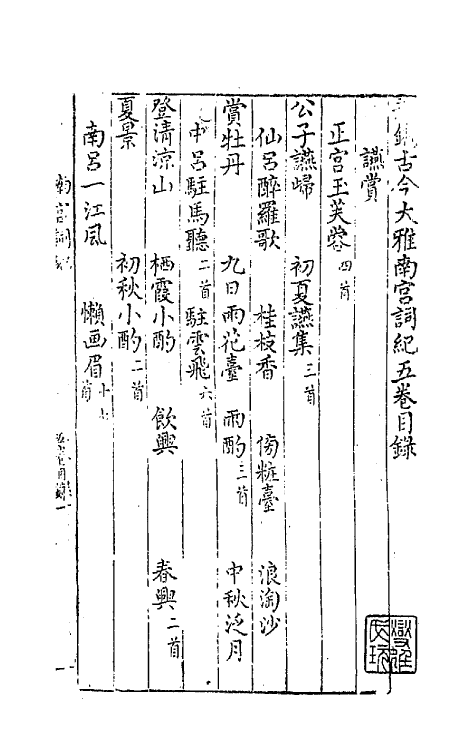 鐫古今大雅南宮詞紀五卷目錄
讌賞
正宮玉芙蓉 四首
公子讌歸 初夏讌集 三首
仙呂醉羅歌 桂枝香 傍粧臺 浪淘沙
賞牡丹 九日雨花臺 雨酌 三首 中秋泛月
中呂駐馬聽 二首 駐雲飛 六首
登清涼山 栖霞小酌 飲興 春興 二首
夏景 初秋小酌 二首
南呂一江風 懶画眉
南宮詞紀